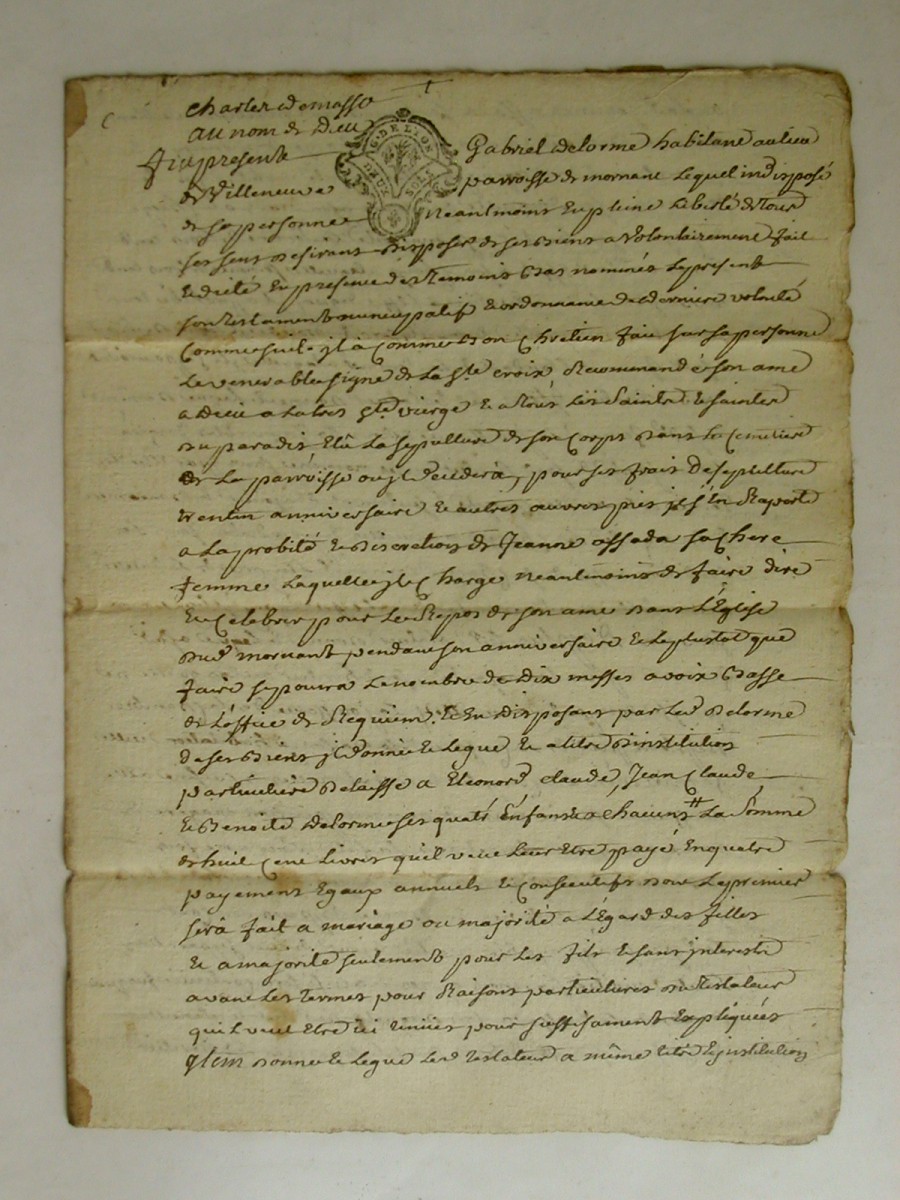 Charles Demasso
au nom de Dieu
G. DE LYON
DEUX SOLS
fut present Gabriel Delorme habitant au lieu
de Villeneuve parroisse de mornant lequel indisposé
de sa personne Neantmoins en pleine Liberté de tous
ses sens desirant disposer de ses biens a volontairement fait
et dicté en presence des temoins bas nommés le present
son testament nuncupatif et ordonnance de derniere volonté
Comme suit. jl à Comme bon Chretien fait sur sa personne
Le venerable signe de La Ste croix Recommandé son ame
a Dieu a La tres Ste vierge et a tous Les Saints et saintes
du paradis Elû La sepulture de son Corps dans Le Cemitiere
de La parroisse ou jl decedera, pour ses frais de sepulture
trentin anniversaire et autres œuvres pies jl s'En Raporte
a La probité et discretion de Jeanne assada sa Chere
femme Laquelle jl Charge neantmoins de faire dire
et Celebrer pour Le Repos de son ame dans L'Eglise
dud mornant pendant son anniversaire et Le plustot que
faire se poura Le nombre de Dix messes a voix basse
de L'office de Requiem. et En disposant par Led Delorme
de ses biens jl donne et Legue et a titre d'institution
particuliere delaisse a Eleonord, Claude, Jean Claude
et Benoite Delorme ses quatre Enfants a Chacuns La somme
de huit Cent Livres qu'il veut Leur Etre payé En quatre
payements Egaux annuels et Consecutifs dont Le premier
serà fait a mariage ou majorité a L'Egard des filles
et a majorité seulement pour Les fils et sans jnterests
avant Les termes pour Raisons particulieres du testateur
qu'il veut Etre ici tenues pour suffisament Expliquées
Item donne et Legue Led testateur a même titre d'institution